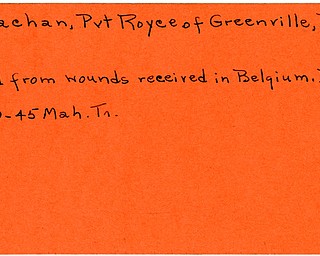 achan, Pvt Royce of Greenville,
from wounds received in Belgium.
-45 Mah. Tr.